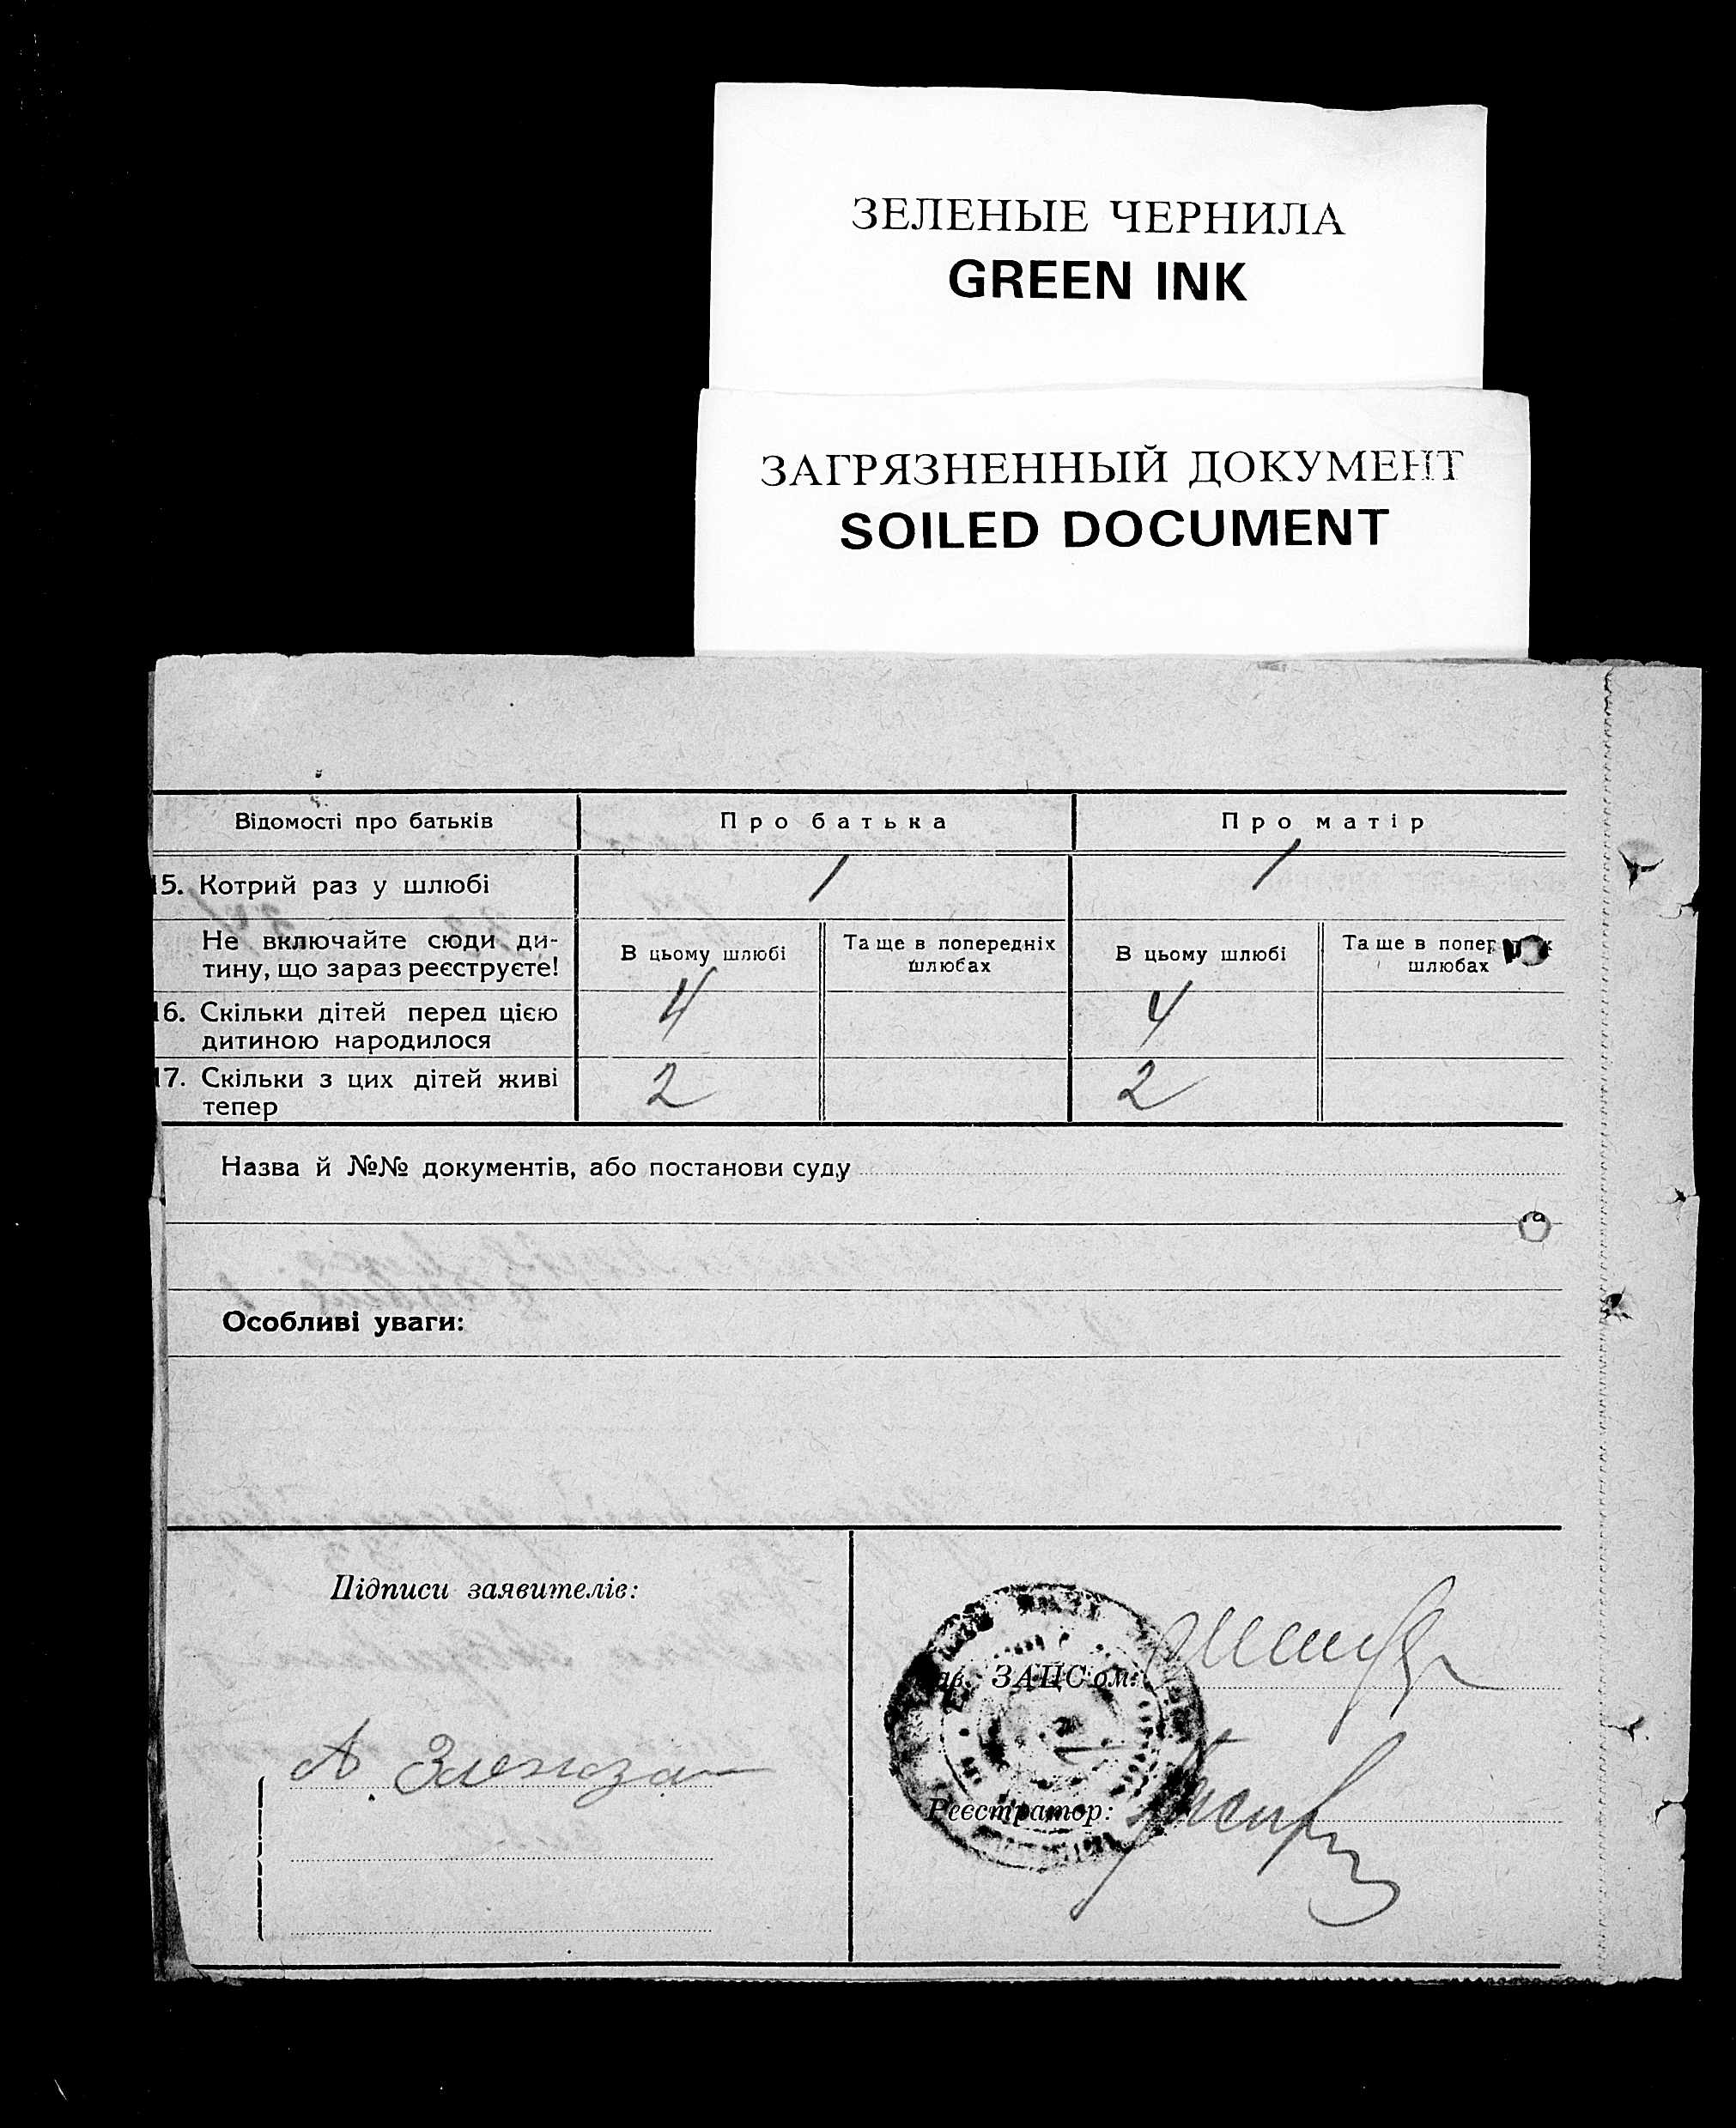 ЗЕЛЕНЫЕ ЧЕРНИЛА
GREEN INK
ЗАГРЯЗНЕННЫЙ ДОКУМЕНТ
SOILED DOCUMENT
Відомості про батьків
Про батька
Про матір
15. Котрий раз у шлюбі
1
1
Не включайте сюди ди-
тину, що зараз реєструєте!
В цьому шлюбі
Та ще в попередніх
шлюбах
В цьому шлюбі
Та ще в попер
шлюбах
16. Скільки дітей перед цією
дитиною народилося
4
4
17. Скільки з цих дітей живі
тепер
2
2
Назва й №№ документів, або постанови суду
Особливі уваги:
Підписи заявителів:
ав. ЗАЦС'ом:
А
Реєстратор: